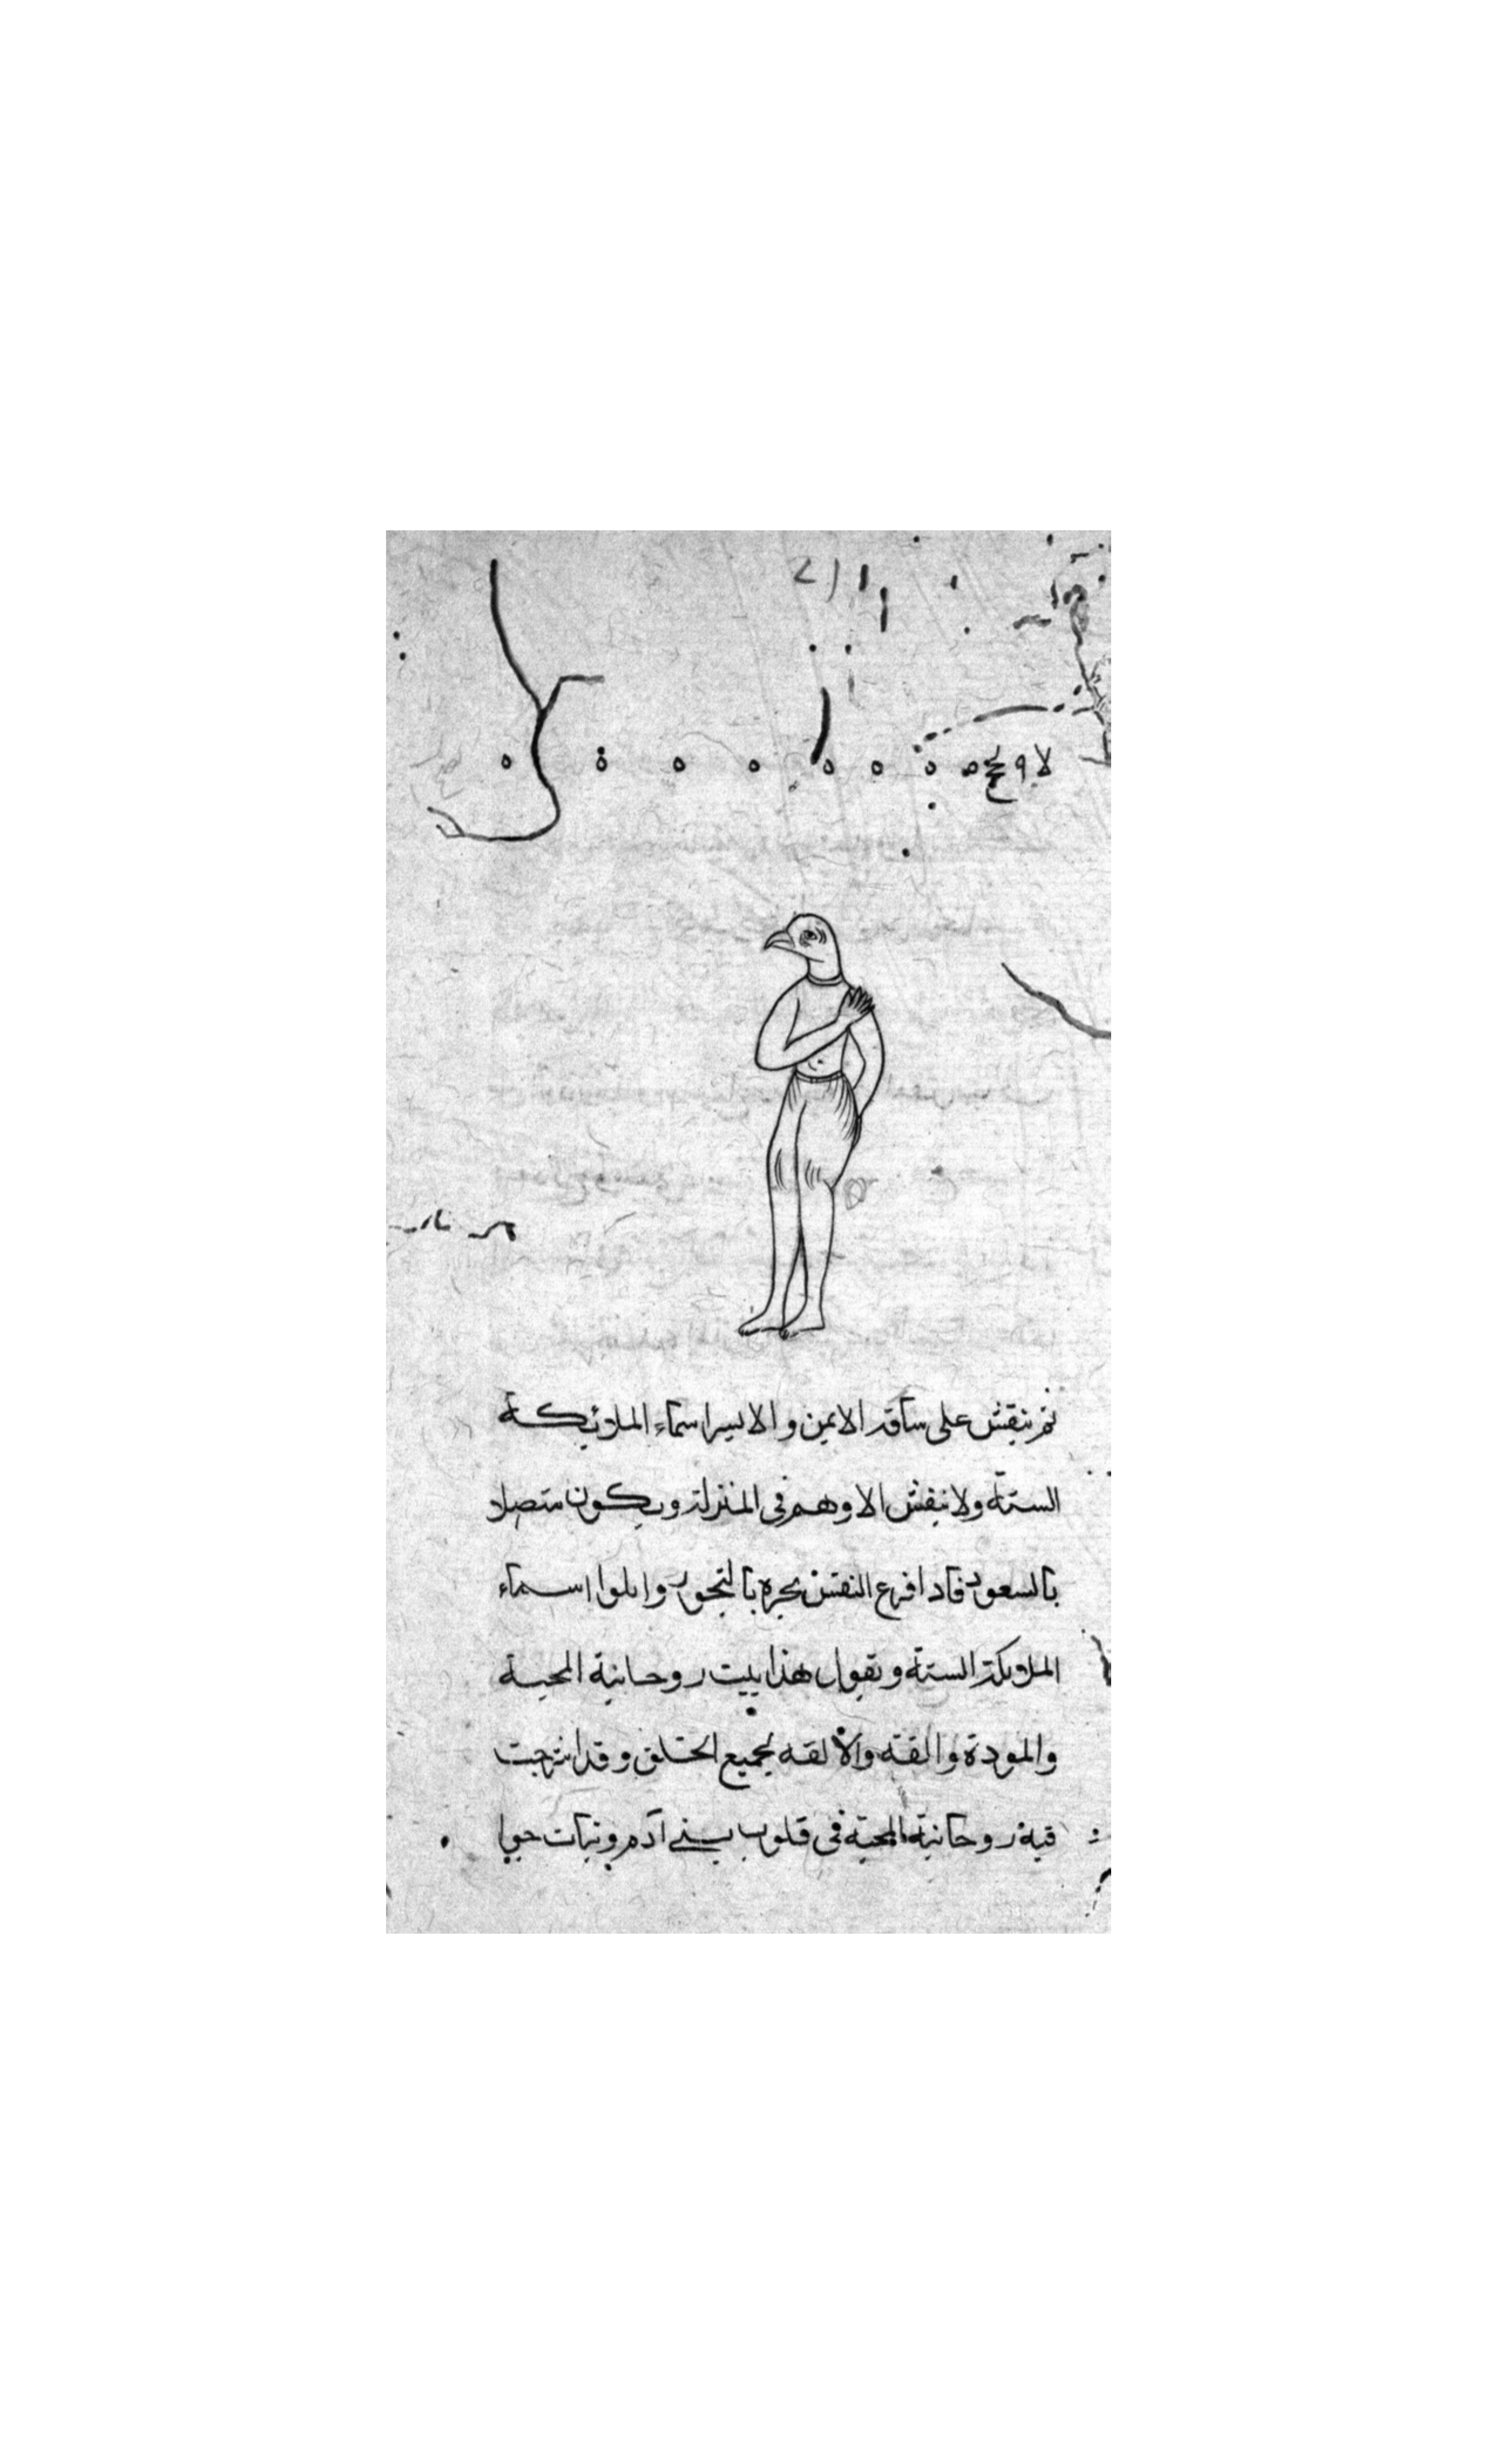 لا و لح ه ه ه ه ه ه ه ه
ثم ينقش على ساقه الايمن والايسر اسماء الملائيكة
الستة ولا ينقش الا وهم فى المنزلة ويكون متصلا
بالسعود فاذا فرغ النقش بخره بالبخور واتلوا اسماء
الملايكة الستة ويقول هذا بيت روحانية المحبة
والمودة والقة والالفه لجميع الخلق وقد
فيه روحانية المحبة فى قلوب بنى آدم وبنات حوا